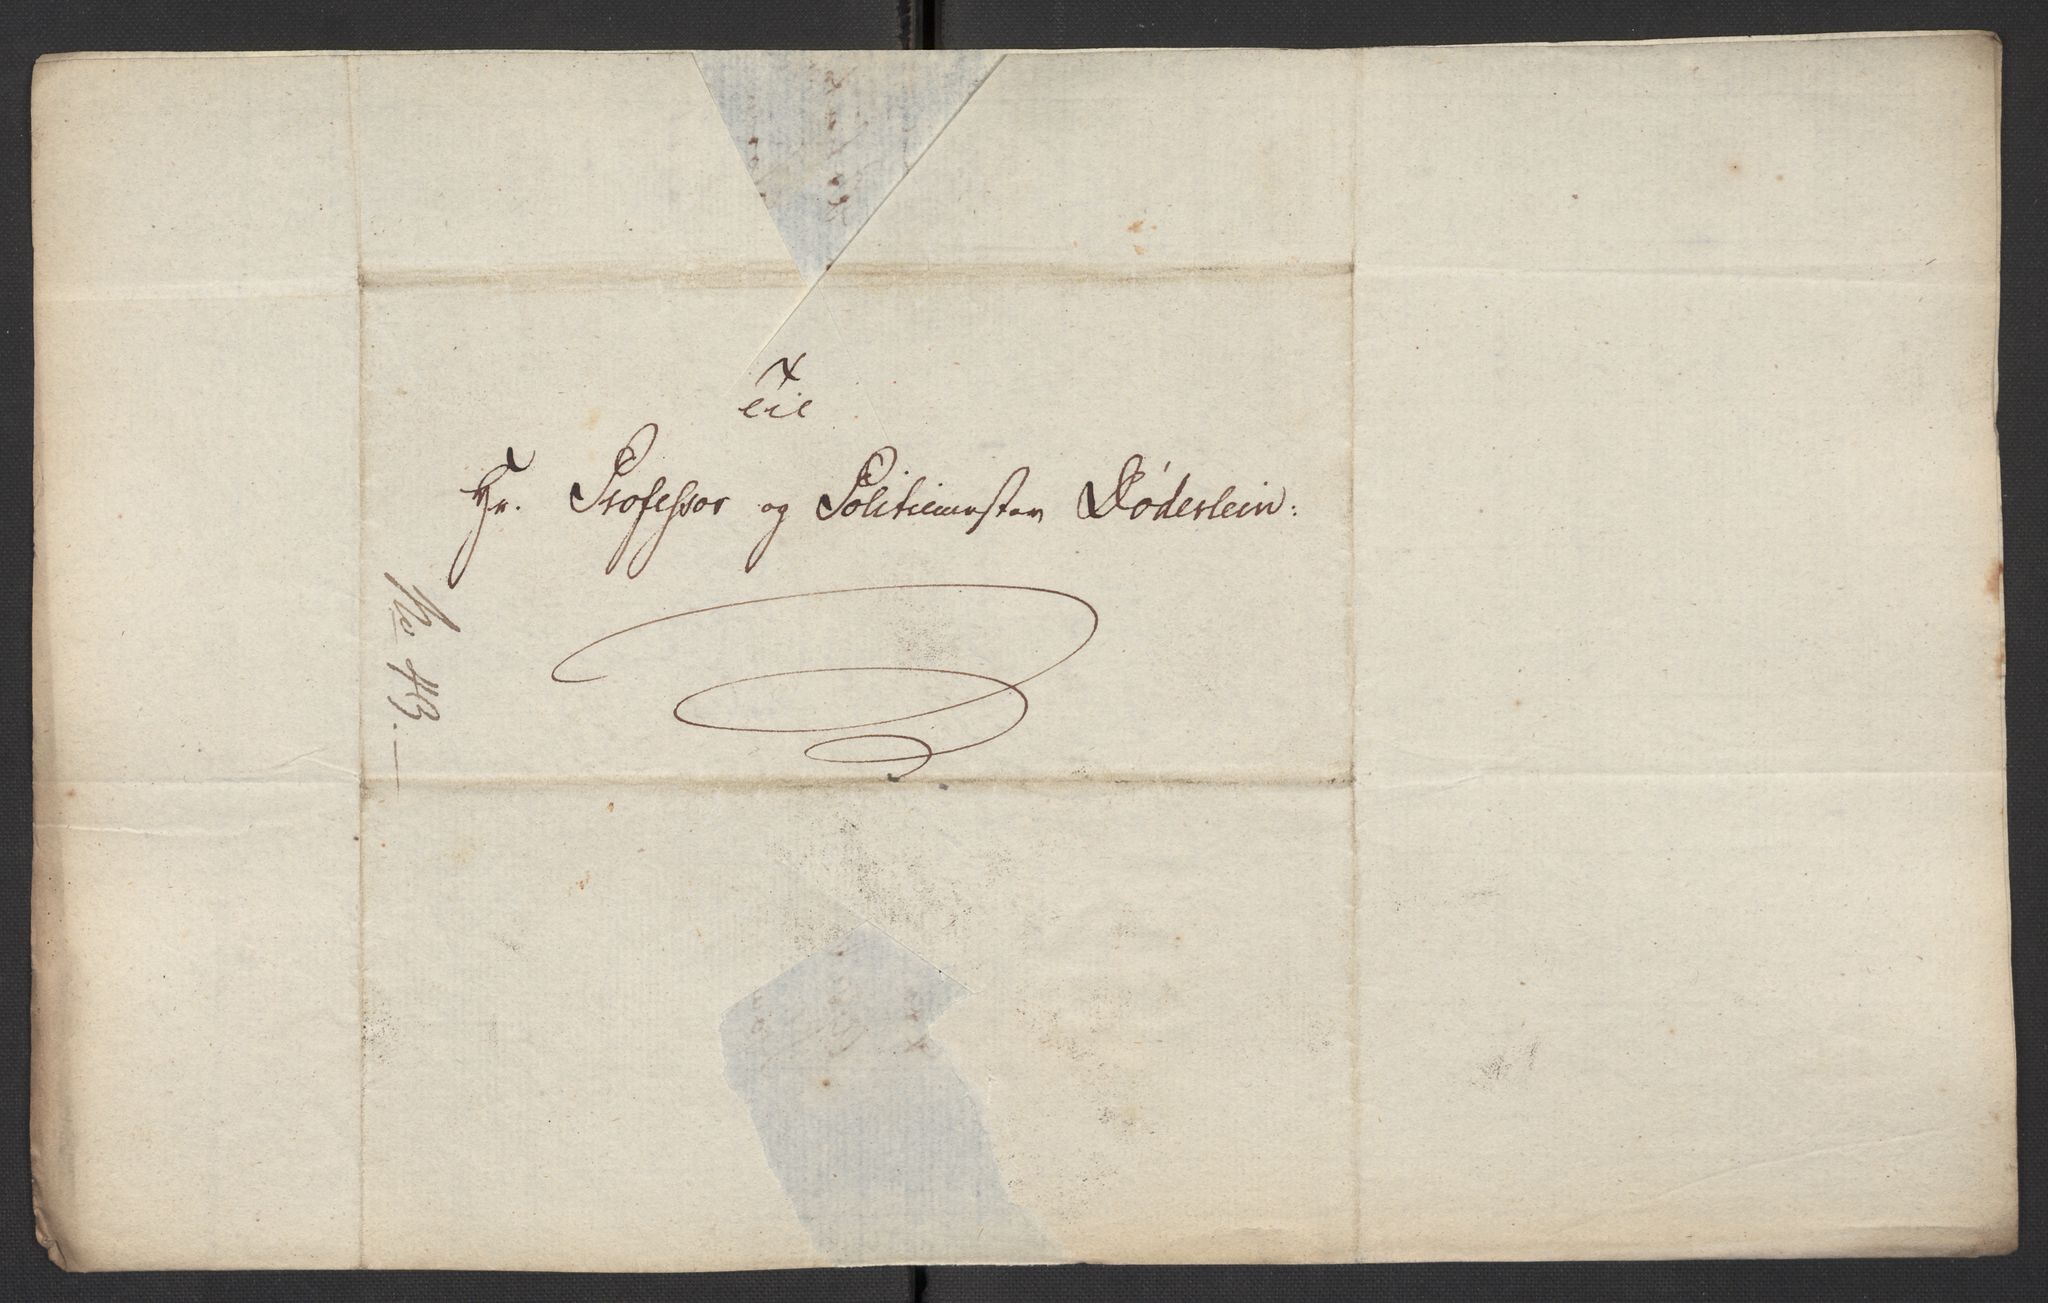 Til
Hr. Professor og Politimester Døderlein:
No 43.—